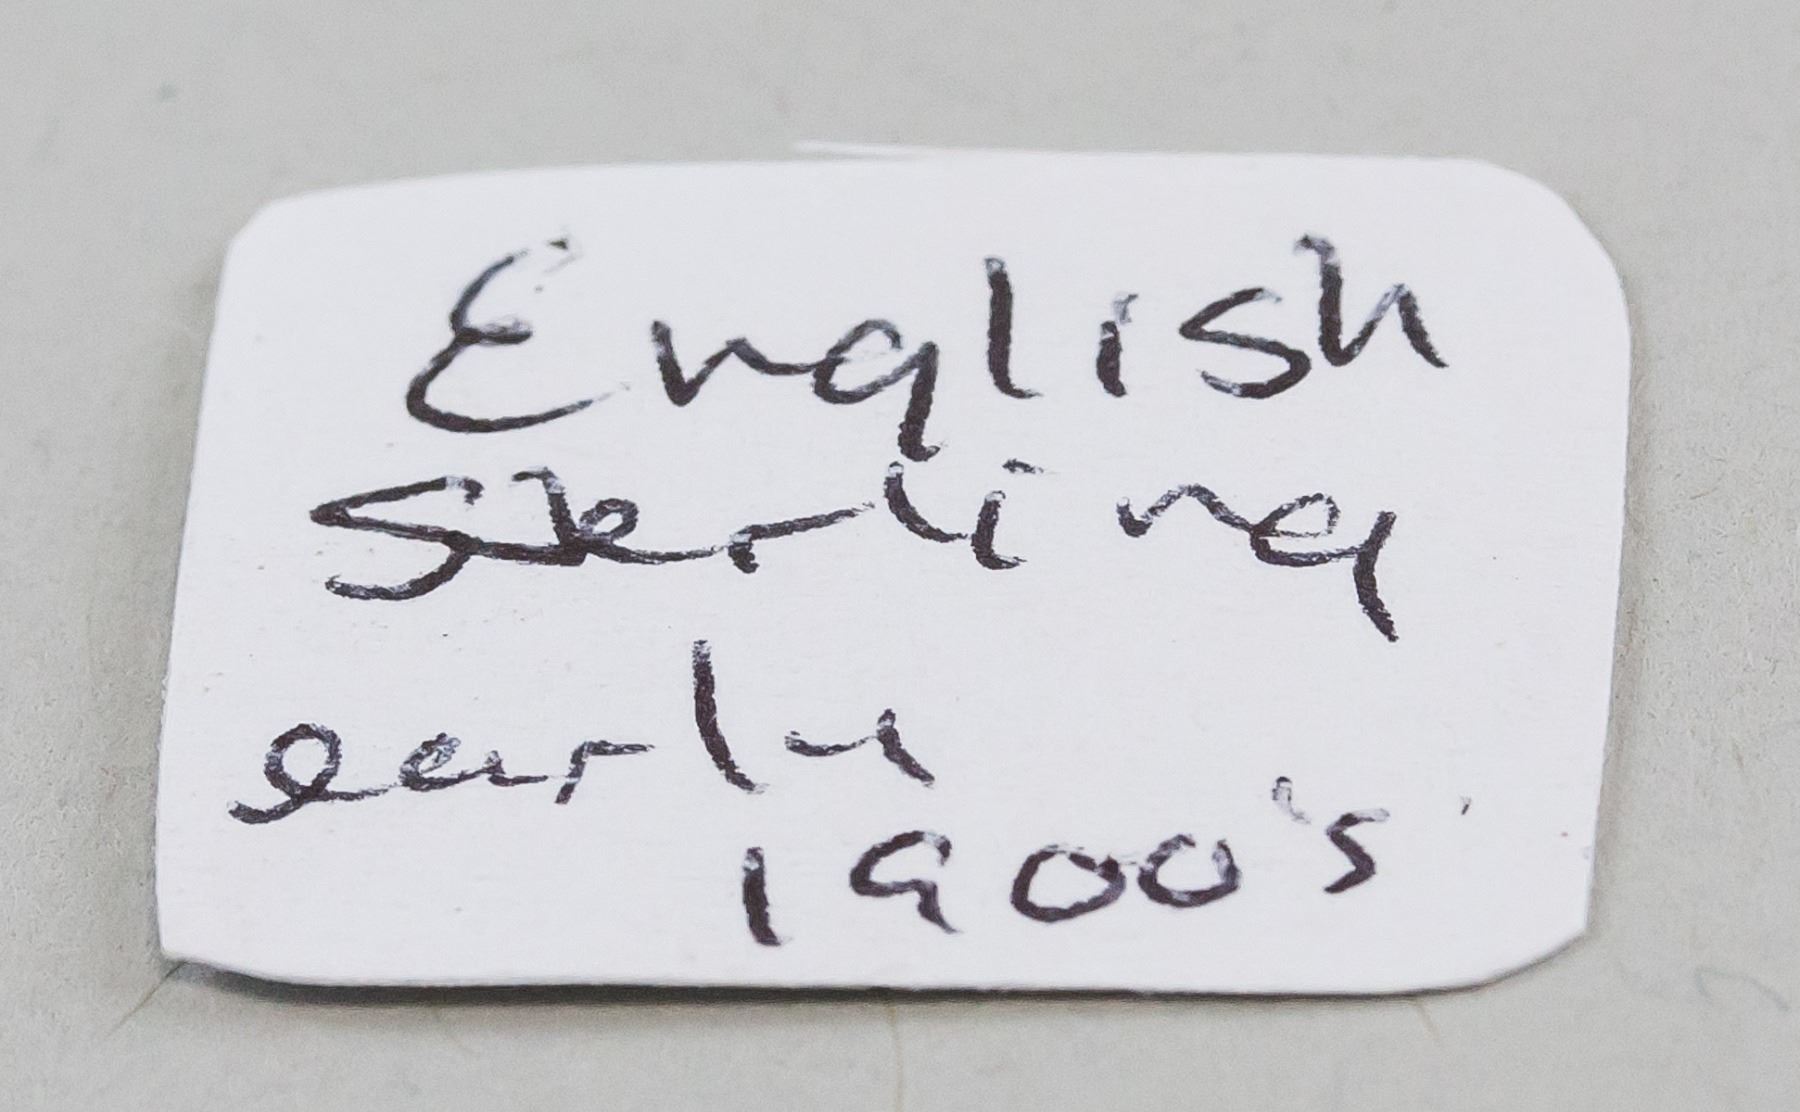 English
Sterling
early
1900's